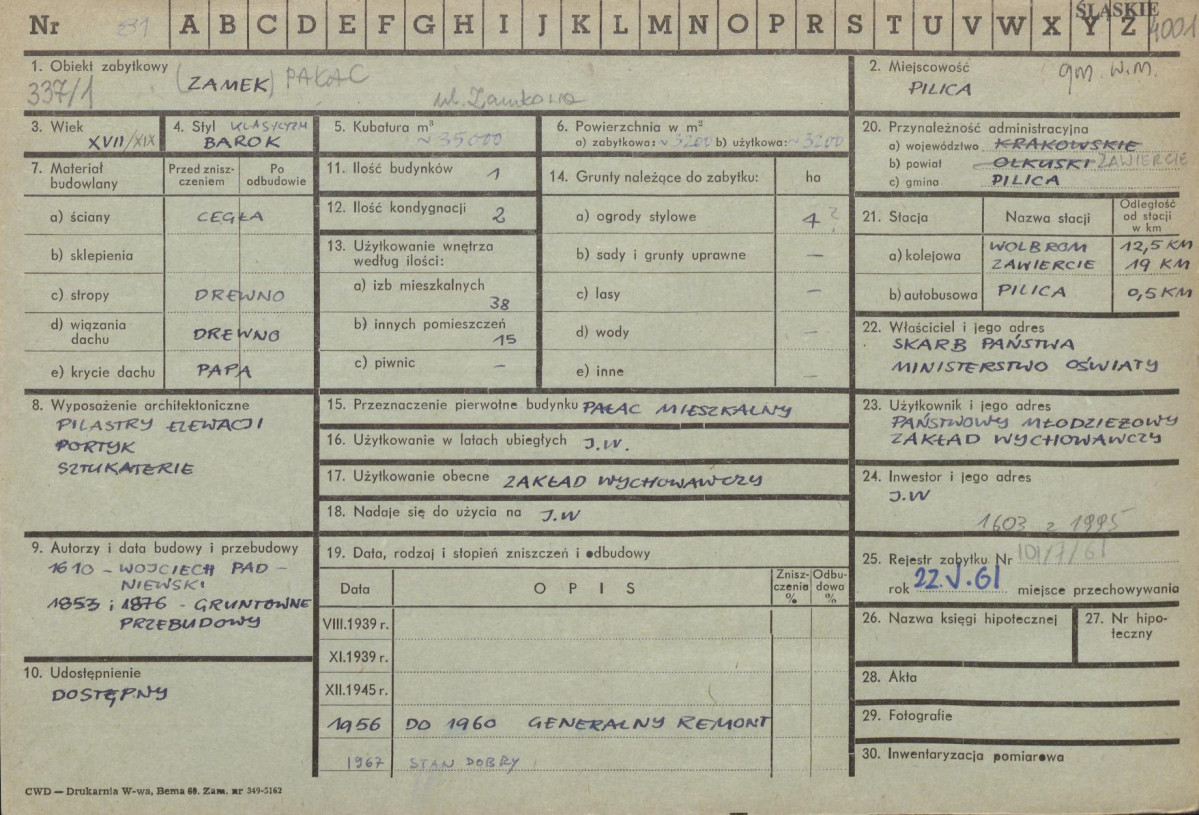 Nr 81 A B C D E F G H I J K L M N O P R S T U V W X Y Z
ŚLĄSKIE
4001
1. Obiekt zabytkowy
(ZAMEK) PAŁAC
337/1
ul. Zamkowa
2. Miejscowość
gm. w.m.
PILICA
3. Wiek
XVII/XIX
4. Styl KLASYCYZM
BAROK
5. Kubatura m³
~35000
6. Powierzchnia w m²
a) zabytkowa: ~3200 b) użytkowa: ~3200
20. Przynależność administracyjna
a) województwo KRAKOWSKIE
b) powiat OLKUSKI ZAWIERCIE
c) gmina PILICA
7. Materiał budowlany
Przed znisz-
czeniem
Po
odbudowie
a) ściany CEGŁA
b) sklepienia
c) stropy DREWNO
d) wiązania
dachu DREWNO
e) krycie dachu PAPA
11. Ilość budynków 1
12. Ilość kondygnacji 2
13. Użytkowanie wnętrza
według ilości:
a) izb mieszkalnych
38
b) innych pomieszczeń
15
c) piwnic –
14. Grunty należące do zabytku: ha
a) ogrody stylowe 4 ?
b) sady i grunty uprawne –
c) lasy –
d) wody –
e) inne –
21. Stacja Nazwa stacji Odległość
od stacji
w km
a) kolejowa WOLBROM 12,5 KM
ZAWIERCIE 19 KM
b) autobusowa PILICA 0,5 KM
22. Właściciel i jego adres
SKARB PAŃSTWA
MINISTERSTWO OŚWIATY
8. Wyposażenie architektoniczne
PILASTRY ELEWACJI
PORTYK
SZTUKATERIE
15. Przeznaczenie pierwotne budynku PAŁAC MIESZKALNY
16. Użytkowanie w latach ubiegłych J.W.
17. Użytkowanie obecne ZAKŁAD WYCHOWAWCZY
18. Nadaje się do użycia na J.W
23. Użytkownik i jego adres
PAŃSTWOWY MŁODZIEŻOWY
ZAKŁAD WYCHOWAWCZY
24. Inwestor i jego adres
J.W
1603 z 1995
9. Autorzy i data budowy i przebudowy
1610 - WOJCIECH PAD-
NIEWSKI
1853 i 1876 - GRUNTOWNE
PRZEBUDOWY
10. Udostępnienie
DOSTĘPNY
19. Data, rodzaj i stopień zniszczeń i odbudowy
Data OPIS Znisz-
czenia
% Odbu-
dowa
%
VIII.1939 r.
XI.1939 r.
XII.1945 r.
1956 DO 1960 GENERALNY REMONT
1967 STAN DOBRY
25. Rejestr zabytku Nr 101/7/61
rok 22.V.61 miejsce przechowywania
26. Nazwa księgi hipotecznej
27. Nr hipo-
teczny
28. Akta
29. Fotografie
30. Inwentaryzacja pomiarowa
CWD — Drukarnia W-wa, Bema 60. Zam. nr 349-5162